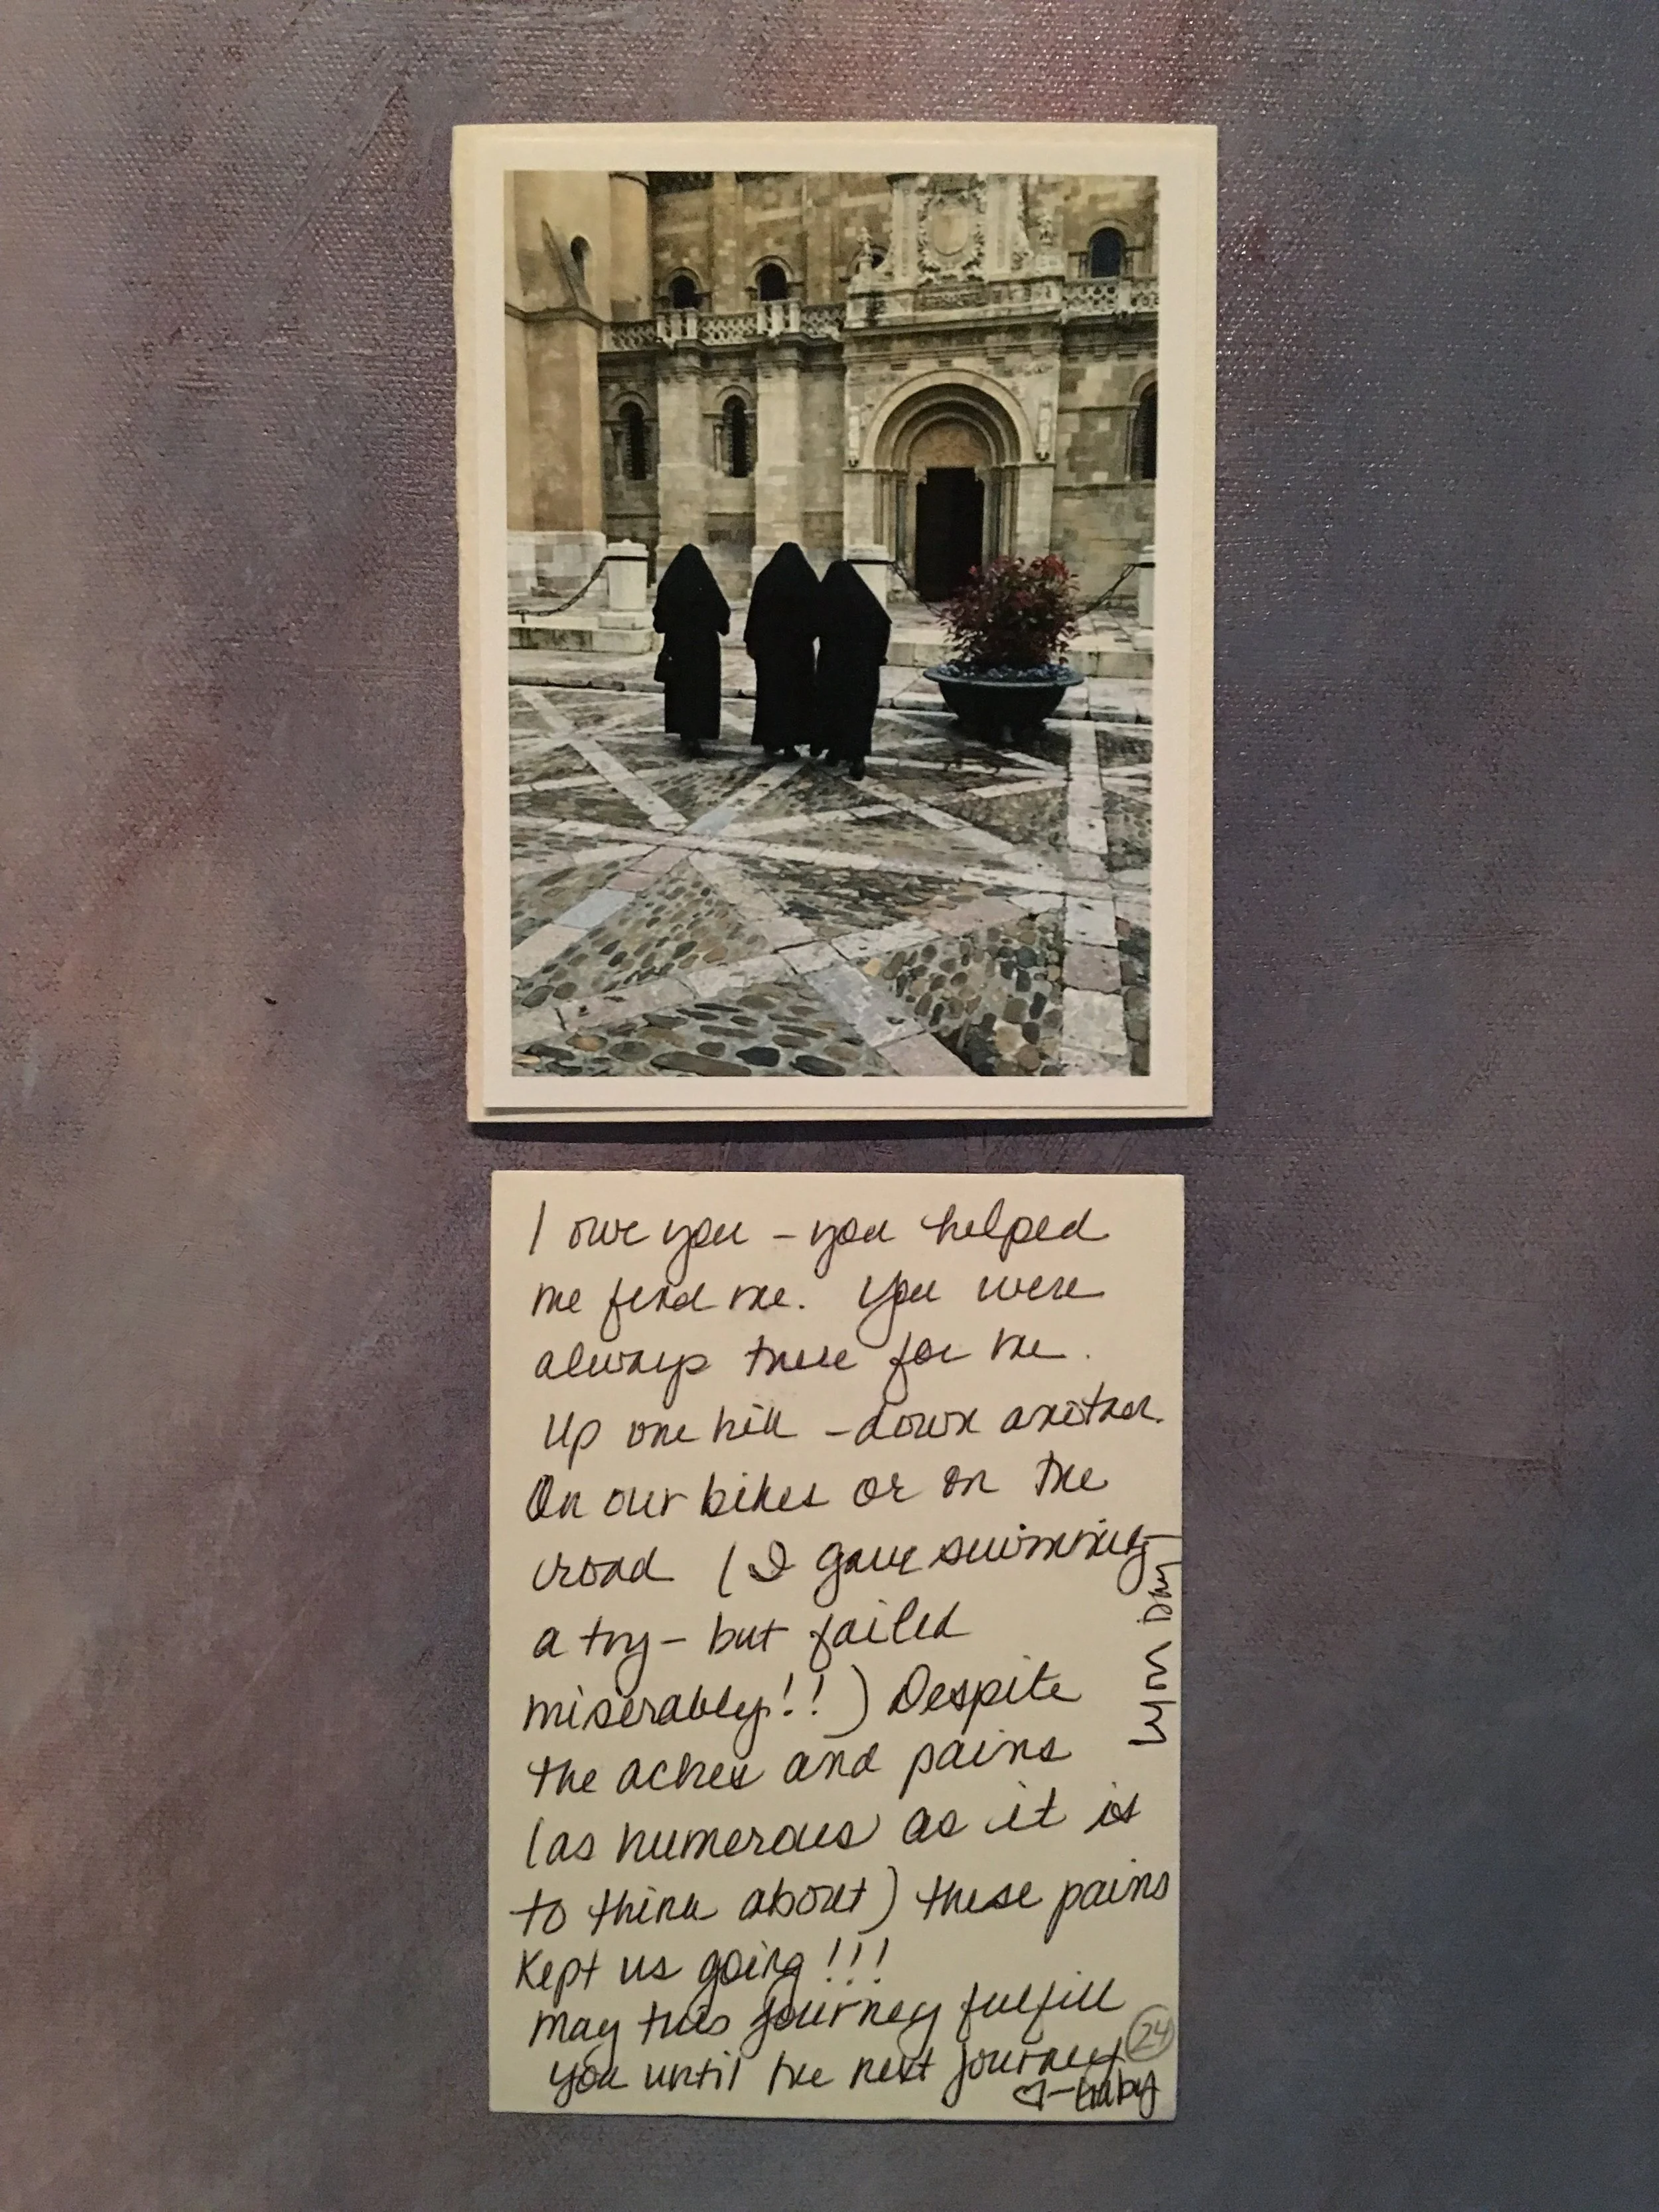 I owe you – you helped
me find me. You were
always there for me.
Up one hill – down another.
On our bikes or on the
road (I gave swimming
a try – but failed
miserably!!) Despite
the aches and pains
(as numerous as it is
to think about) these pains
kept us going!!!
May this journey fulfill
you until the next journey
♡ –
24
Day